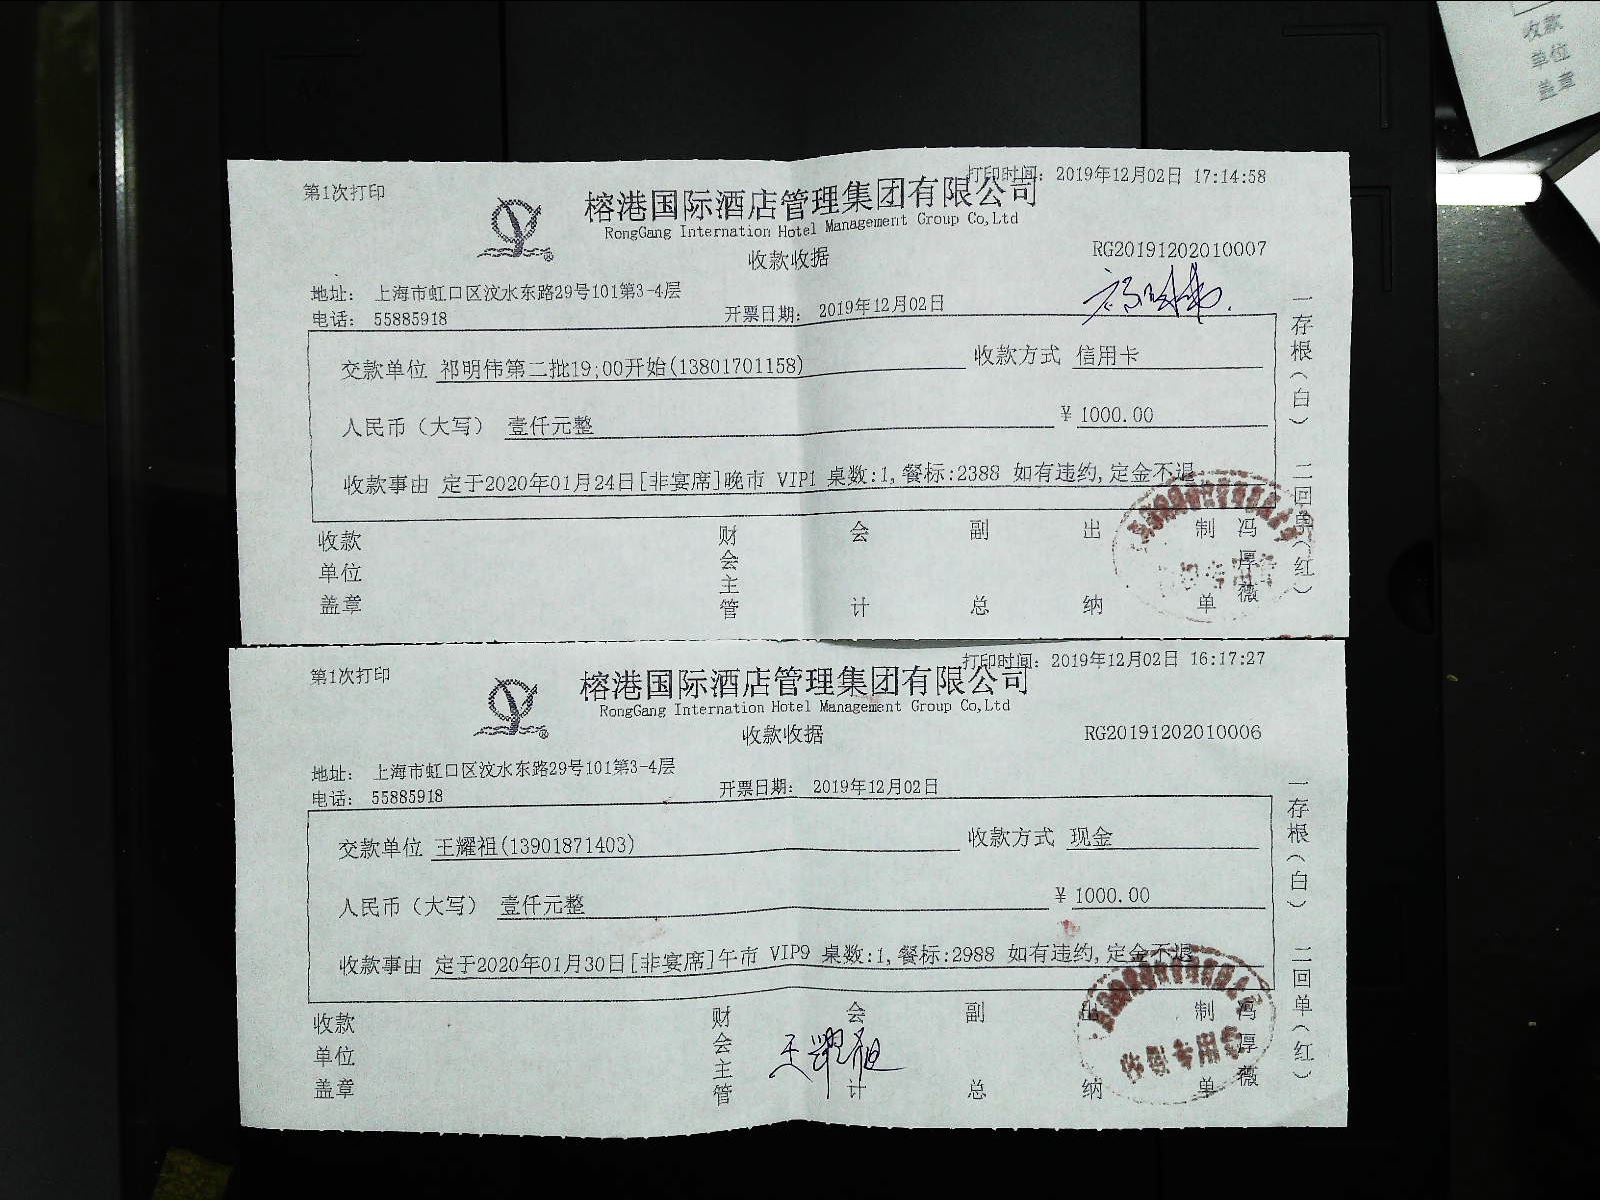 收款
单位
盖章
第1次打印
打印时间：2019年12月02日 17:14:58
榕港国际酒店管理集团有限公司
RongGang Internation Hotel Management Group Co,Ltd
收款收据
RG20191202010007
地址： 上海市虹口区汶水东路29号101第3-4层
电话： 55885918
开票日期： 2019年12月02日
交款单位 祁明伟第二批19;00开始(13801701158)
收款方式 信用卡
人民币（大写） 壹仟元整
￥ 1000.00
收款事由 定于2020年01月24日[非宴席]晚市 VIP1 桌数:1,餐标:2388 如有违约,定金不退
一存根（白） 二回单（红）
收款单位盖章
财会主管
会计
副总
出纳
制单
冯厚薇
第1次打印
打印时间：2019年12月02日 16:17:27
榕港国际酒店管理集团有限公司
RongGang Internation Hotel Management Group Co,Ltd
收款收据
RG20191202010006
地址： 上海市虹口区汶水东路29号101第3-4层
电话： 55885918
开票日期： 2019年12月02日
交款单位 王耀祖(13901871403)
收款方式 现金
人民币（大写） 壹仟元整
￥ 1000.00
收款事由 定于2020年01月30日[非宴席]午市 VIP9 桌数:1,餐标:2988 如有违约,定金不退
一存根（白） 二回单（红）
收款单位盖章
财会主管
会计
王耀祖
副总
出纳
制单
冯厚薇
专用章